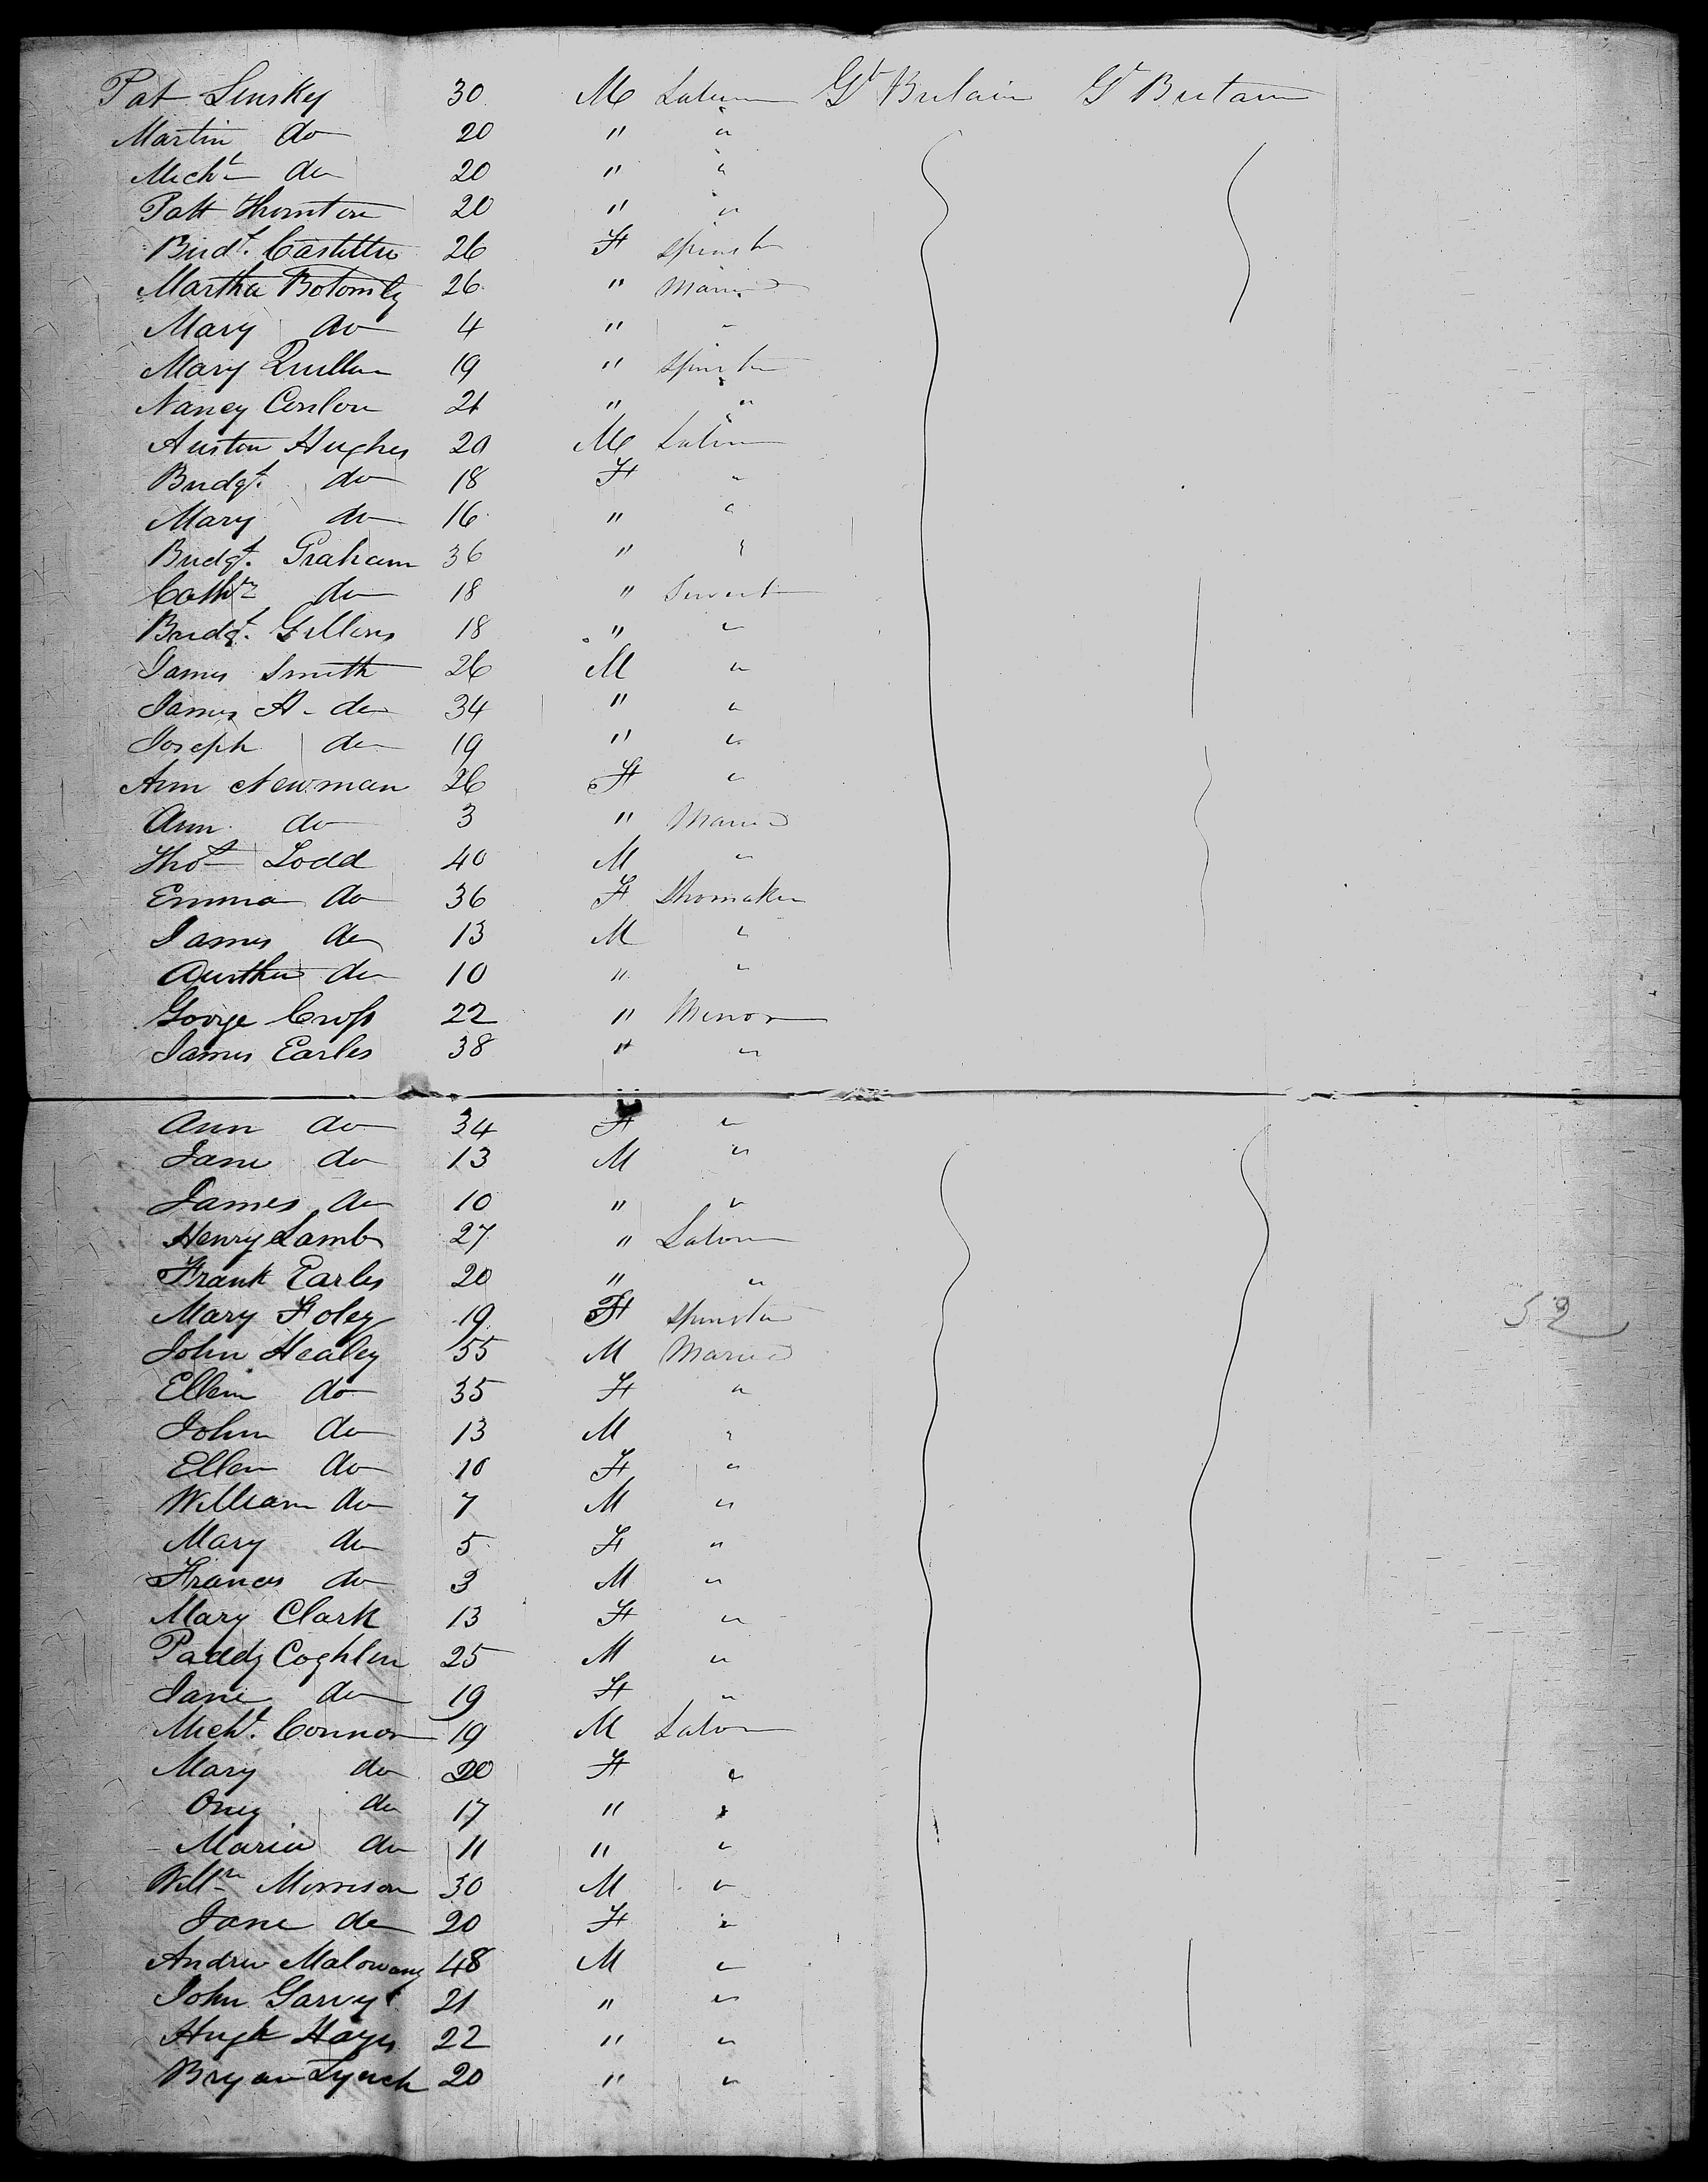 Pat Linskey 30 M Laborer Gt Britain Gt Britain
Martin do 20 " "
Michl do 20 " "
Patt Thornton 20 " "
Bridt. Castello 26 F Spinstr
Martha Botomly 26 " Married
Mary do 4 " "
Mary Quillan 19 " Spinster
Nancy Conlon 21 " "
Auston Hughes 20 M Labor
Bridgt. do 18 F "
Mary do 16 " "
Bridgt. Graham 36 " "
Cathrn do 18 " Servant
Bridgt. Gillens 18 " "
James Smith 26 M "
James A- do 34 " "
Joseph do 19 " "
Ann Newman 26 F "
Ann do 3 " Married
Thos Lodd 40 M "
Emma do 36 F Shomaker
James do 13 M "
Aurther do 10 " "
George Cross 22 " Minor
James Earles 38 " "
Ann do 34 F "
Jane do 13 M "
James do 10 " "
Henry Lamb 27 " Labor
Frank Earles 20 " "
Mary Foley 19 F Spinster
52
John Healey 55 M Married
Ellen do 35 F "
John do 13 M "
Ellen do 10 F "
William do 7 M "
Mary do 5 F "
Francis do 3 M "
Mary Clark 13 F "
Paddy Coghlen 25 M "
Jane do 19 F "
Michl. Connor 19 M Labor
Mary do 20 F "
Oney do 17 " "
Maria do 11 " "
Willm Morrison 30 M "
Jane do 20 F "
Andrew Malowany 48 M "
John Garvy 21 " "
Hugh Hayes 22 " "
Bryan Lynch 20 " "